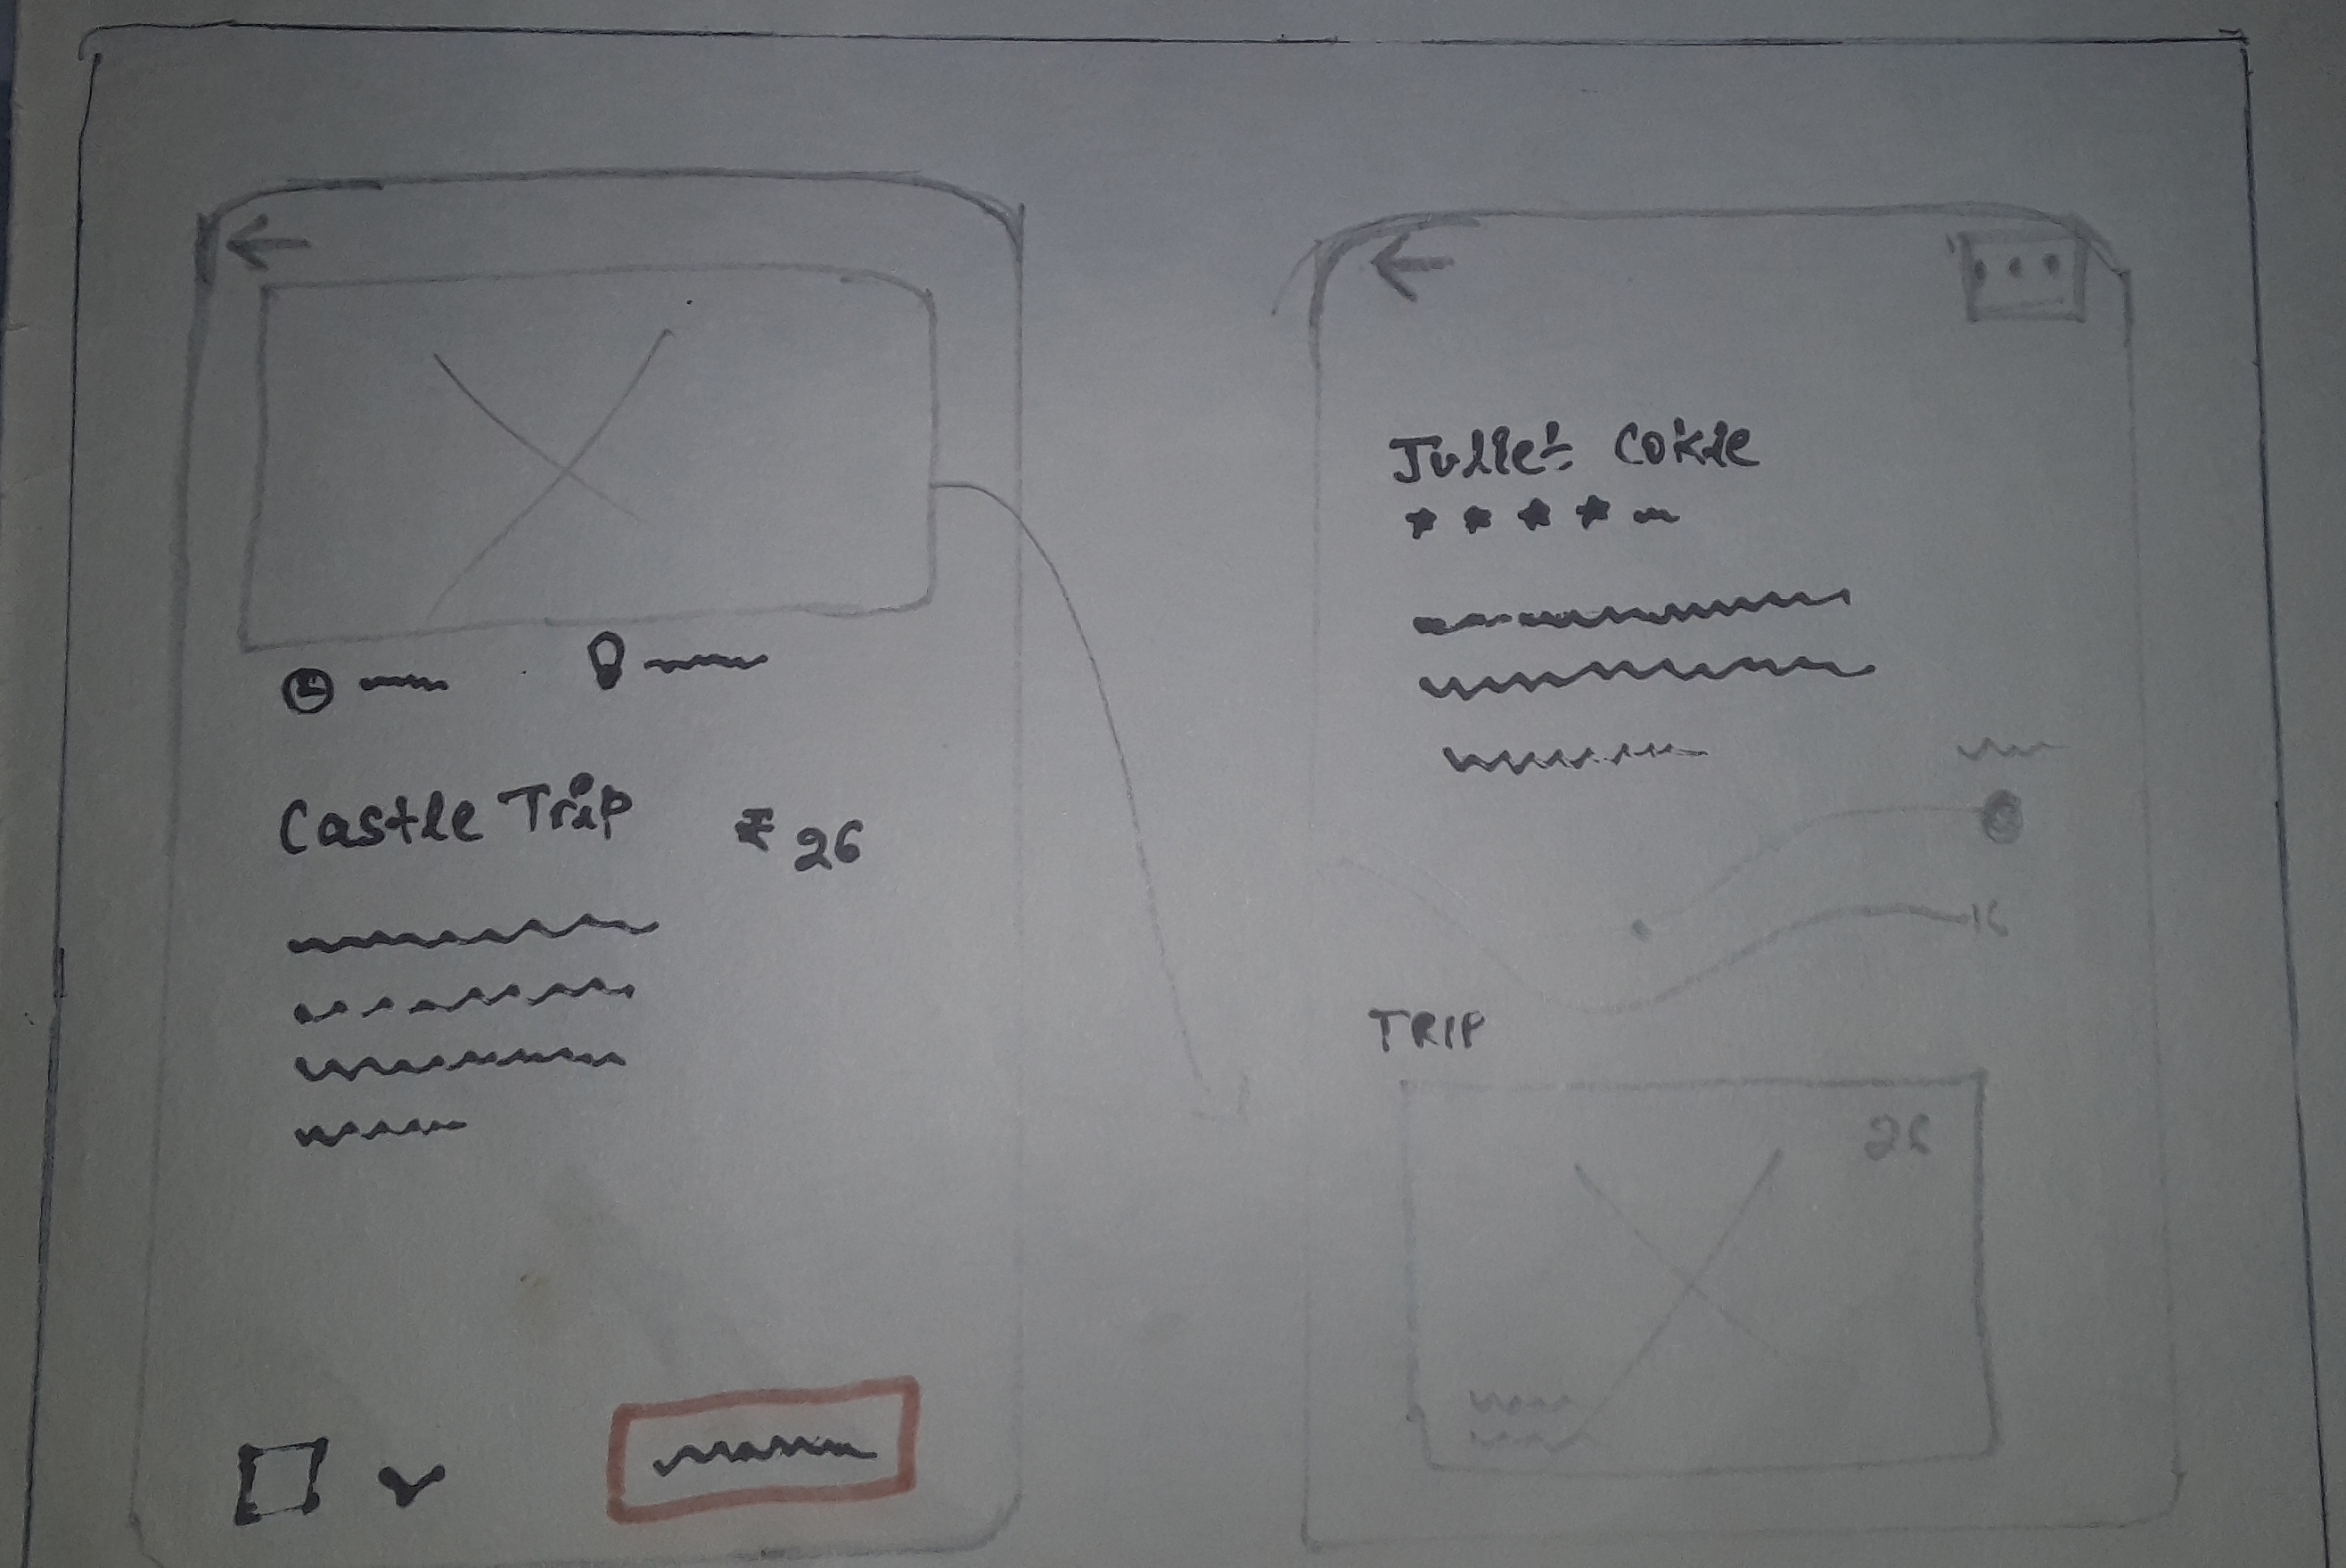 Castle Trip ₹ 26
Juliet Cokie
TRIP
26